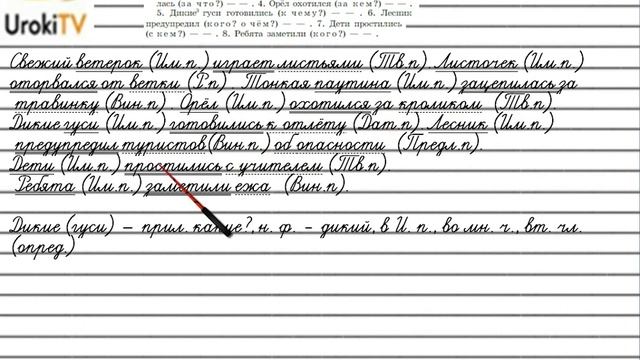 лась (за что?) — — . 4. Орёл охотился (за кем?) — — .
5. Дикие³ гуси готовились (к чему?) — — . 6. Лесник
предупредил (кого? о чём?) — — . 7. Дети простились
(с кем?) — — . 8. Ребята заметили (кого?) — — .
UrokiTV
Свежий ветерок (Им.п.) играет листьями (Тв.п.). Листочек (Им.п.)
оторвался от ветки (Р.п.). Тонкая паутина (Им.п.) зацепилась за
травинку (Вин.п.). Орёл (Им.п.) охотился за кроликом (Тв.п.).
Дикие гуси (Им.п.) готовились к отлёту (Дат.п.). Лесник (Им.п.)
предупредил туристов (Вин.п.) об опасности (Предл.п.).
Дети (Им.п.) простились с учителем (Тв.п.).
Ребята (Им.п.) заметили ежа (Вин.п.).
Дикие (гуси) – прил. какие?, н. ф. – дикий, в И. п., во мн. ч., вт. чл.
(опред.)